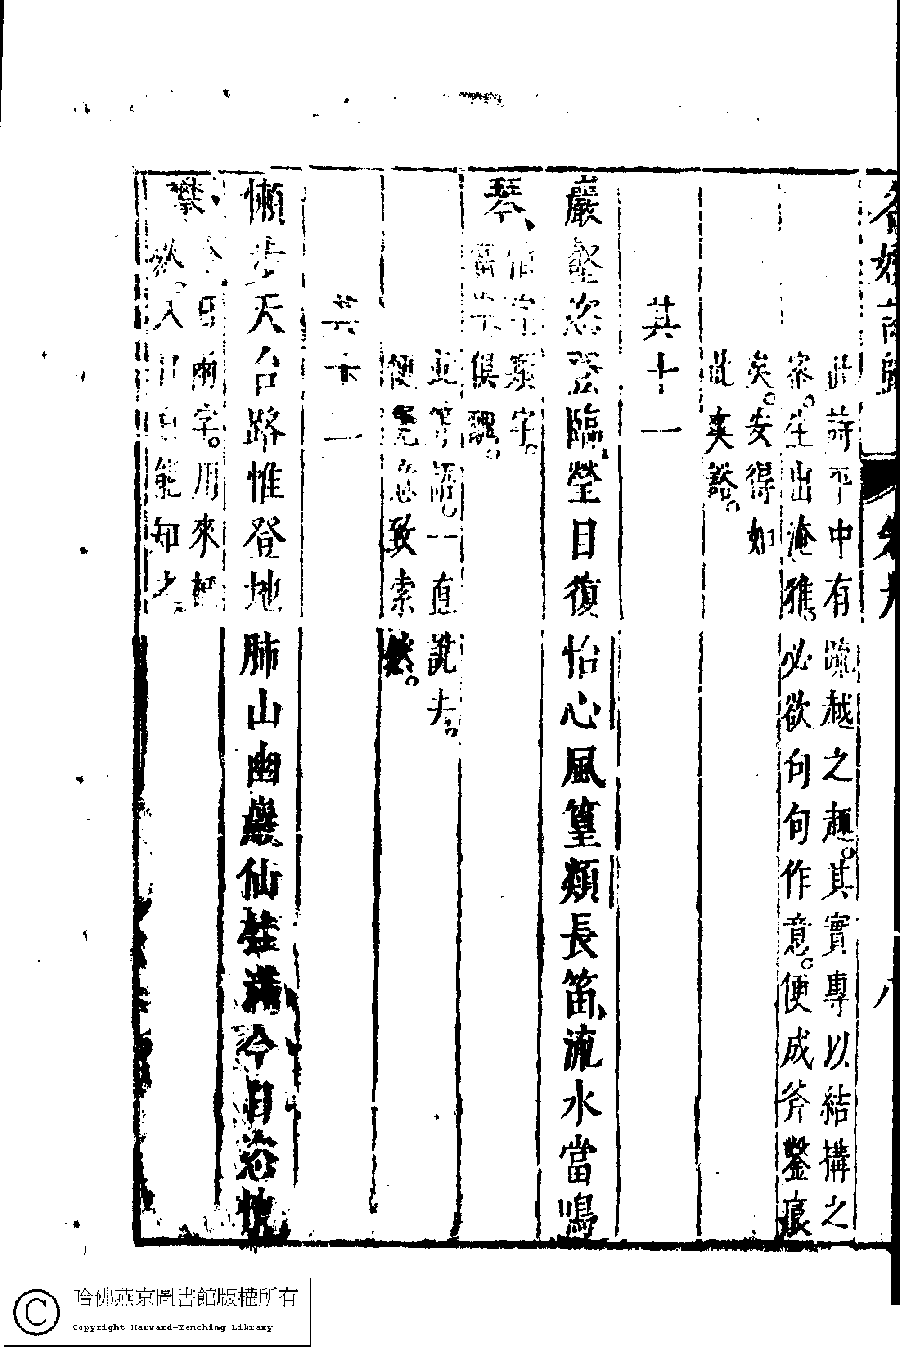 此詩平中有疏越之趣。其實專以結構之
密。生出淹雅。必欲句句作意。便成斧鑿痕
矣。安得如
此奕豁。
其十一
巖壑恣登臨瑩目復怡心風篁類長笛流水當鳴
琴、
俱飄。
直等語。一直說去。
便覺意致索然。
其十二
懶步天台路惟登地肺山幽巖仙桂滿今日恣
攀、
今日兩字。用來
人自能知之
八
哈佛燕京圖書館版權所有
Copyright Harvard-Yenching Library